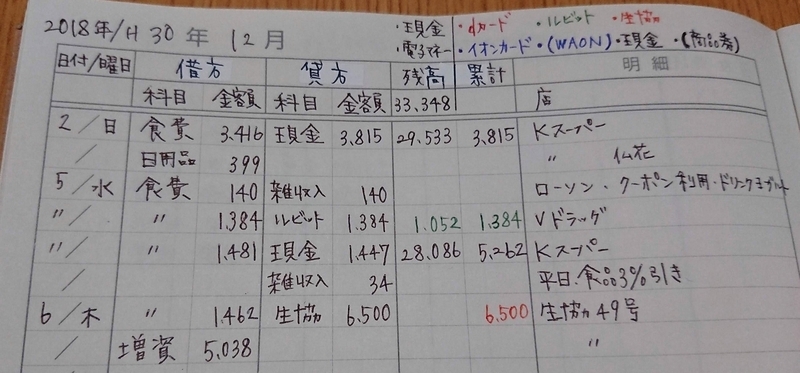 2018年/H 30年 12月
・現金 ・dカード ・ルビット ・生協
・電子マネー ・イオンカード・(WAON)・現金 ・(商品券)
日付/曜日 借方 貸方 残高 累計 明細
科目 金額 科目 金額 33.348 店
2/日 食費 3.416 現金 3,815 29.533 3,815 Kスーパー
/ 日用品 399 〃 仏花
5/水 食費 140 雑収入 140 ローソン・クーポン利用・ドリンクヨーグルト
〃/ 〃 1.384 ルビット 1.384 1.052 1.384 Vドラッグ
〃/ 〃 1.481 現金 1.447 28.086 5,262 Kスーパー
/ 雑収入 34 平日.食品3%引き
6/木 〃 1.462 生協 6.500 6.500 生協49号
/ 増資 5,038 〃